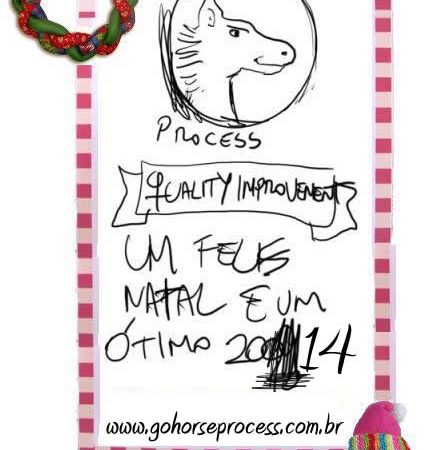 PROCESS
QUALITY IMPROVEMENTS
UM FELIS
NATAL E UM
ÓTIMO 2014
www.gohorseprocess.com.br